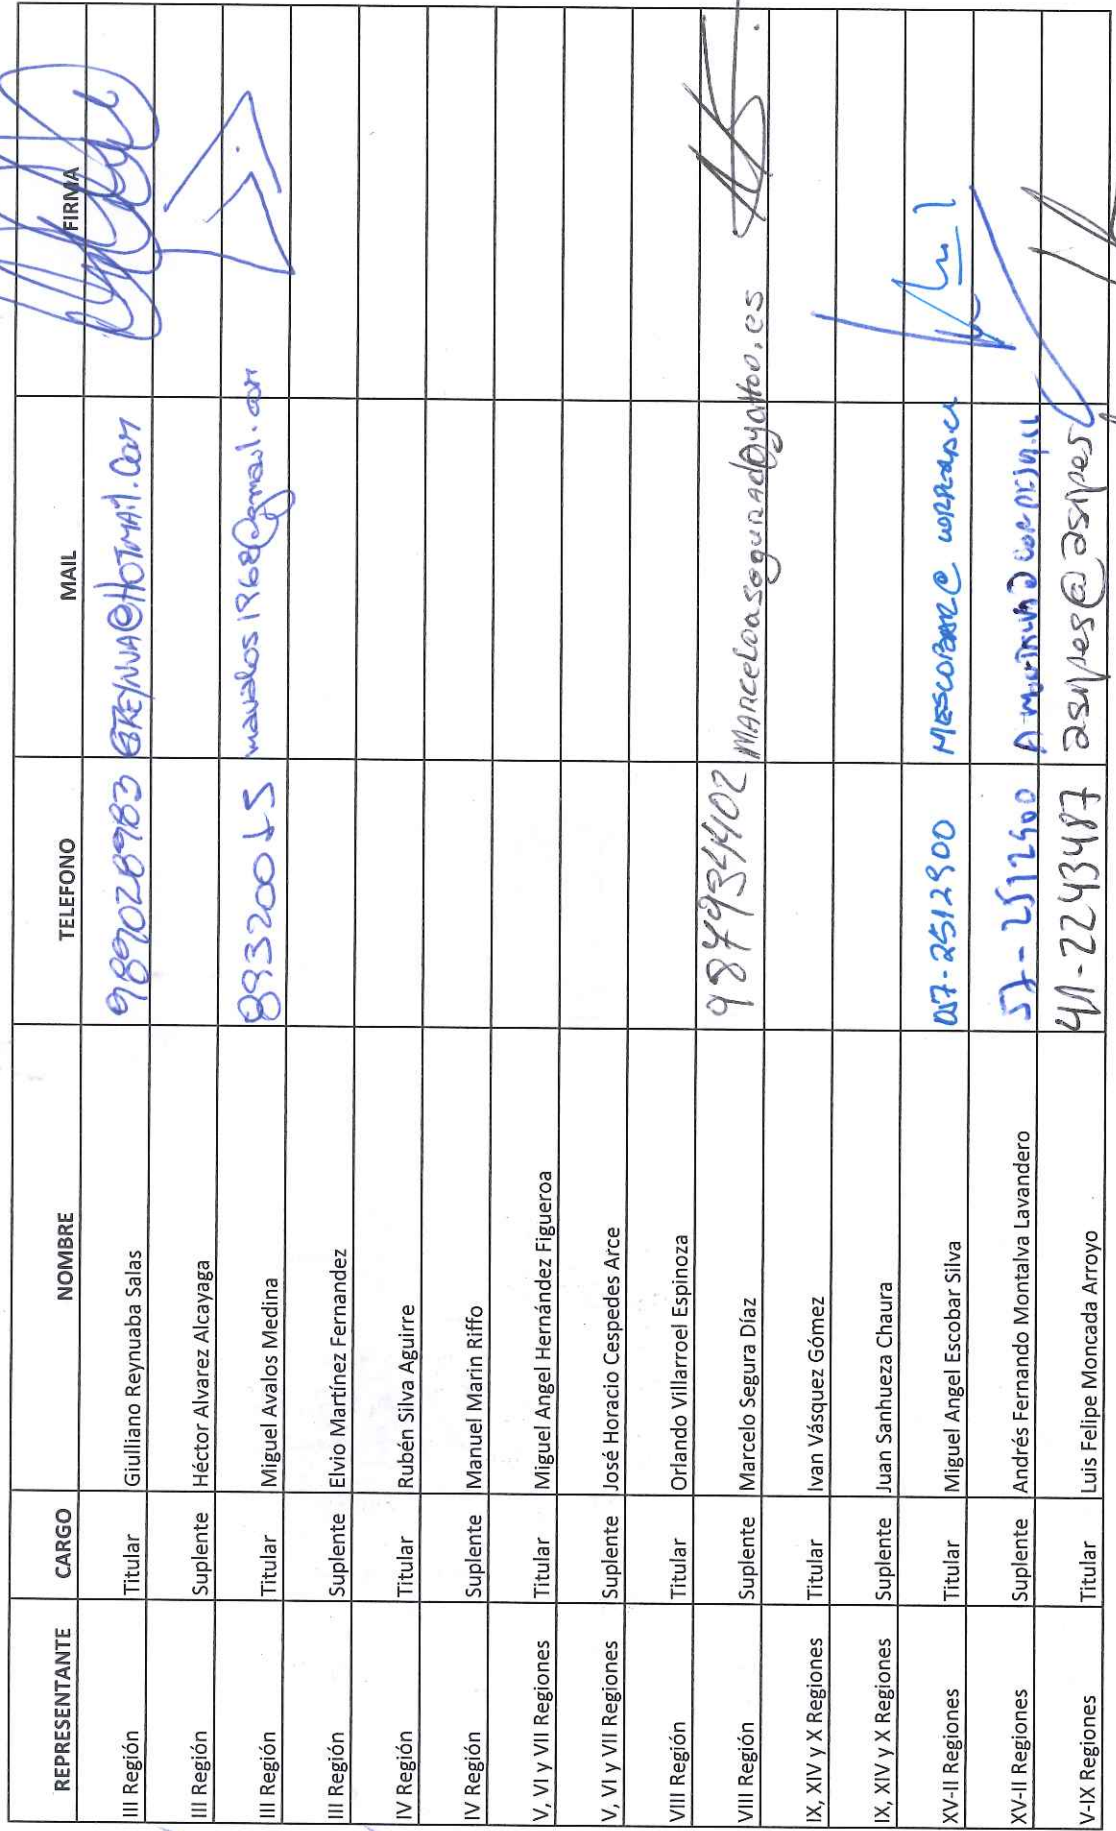 REPRESENTANTE CARGO NOMBRE TELEFONO MAIL FIRMA
III Región Titular Giulliano Reynuaba Salas 989028983 GREYNUA@HOTMAIL.COM
III Región Suplente Héctor Alvarez Alcayaga
III Región Titular Miguel Avalos Medina mavalos1968@gmail.com
III Región Suplente Elvio Martínez Fernandez
IV Región Titular Rubén Silva Aguirre
IV Región Suplente Manuel Marin Riffo
V, VI y VII Regiones Titular Miguel Angel Hernández Figueroa
V, VI y VII Regiones Suplente José Horacio Cespedes Arce
VIII Región Titular Orlando Villarroel Espinoza
VIII Región Suplente Marcelo Segura Díaz 987934402 MARCeloasegurad@yahoo.es
IX, XIV y X Regiones Titular Ivan Vásquez Gómez
IX, XIV y X Regiones Suplente Juan Sanhueza Chaura
XV-II Regiones Titular Miguel Angel Escobar Silva 057-2512900
XV-II Regiones Suplente Andrés Fernando Montalva Lavandero 57-2512900
V-IX Regiones Titular Luis Felipe Moncada Arroyo 41-2243487 asipes@asipes